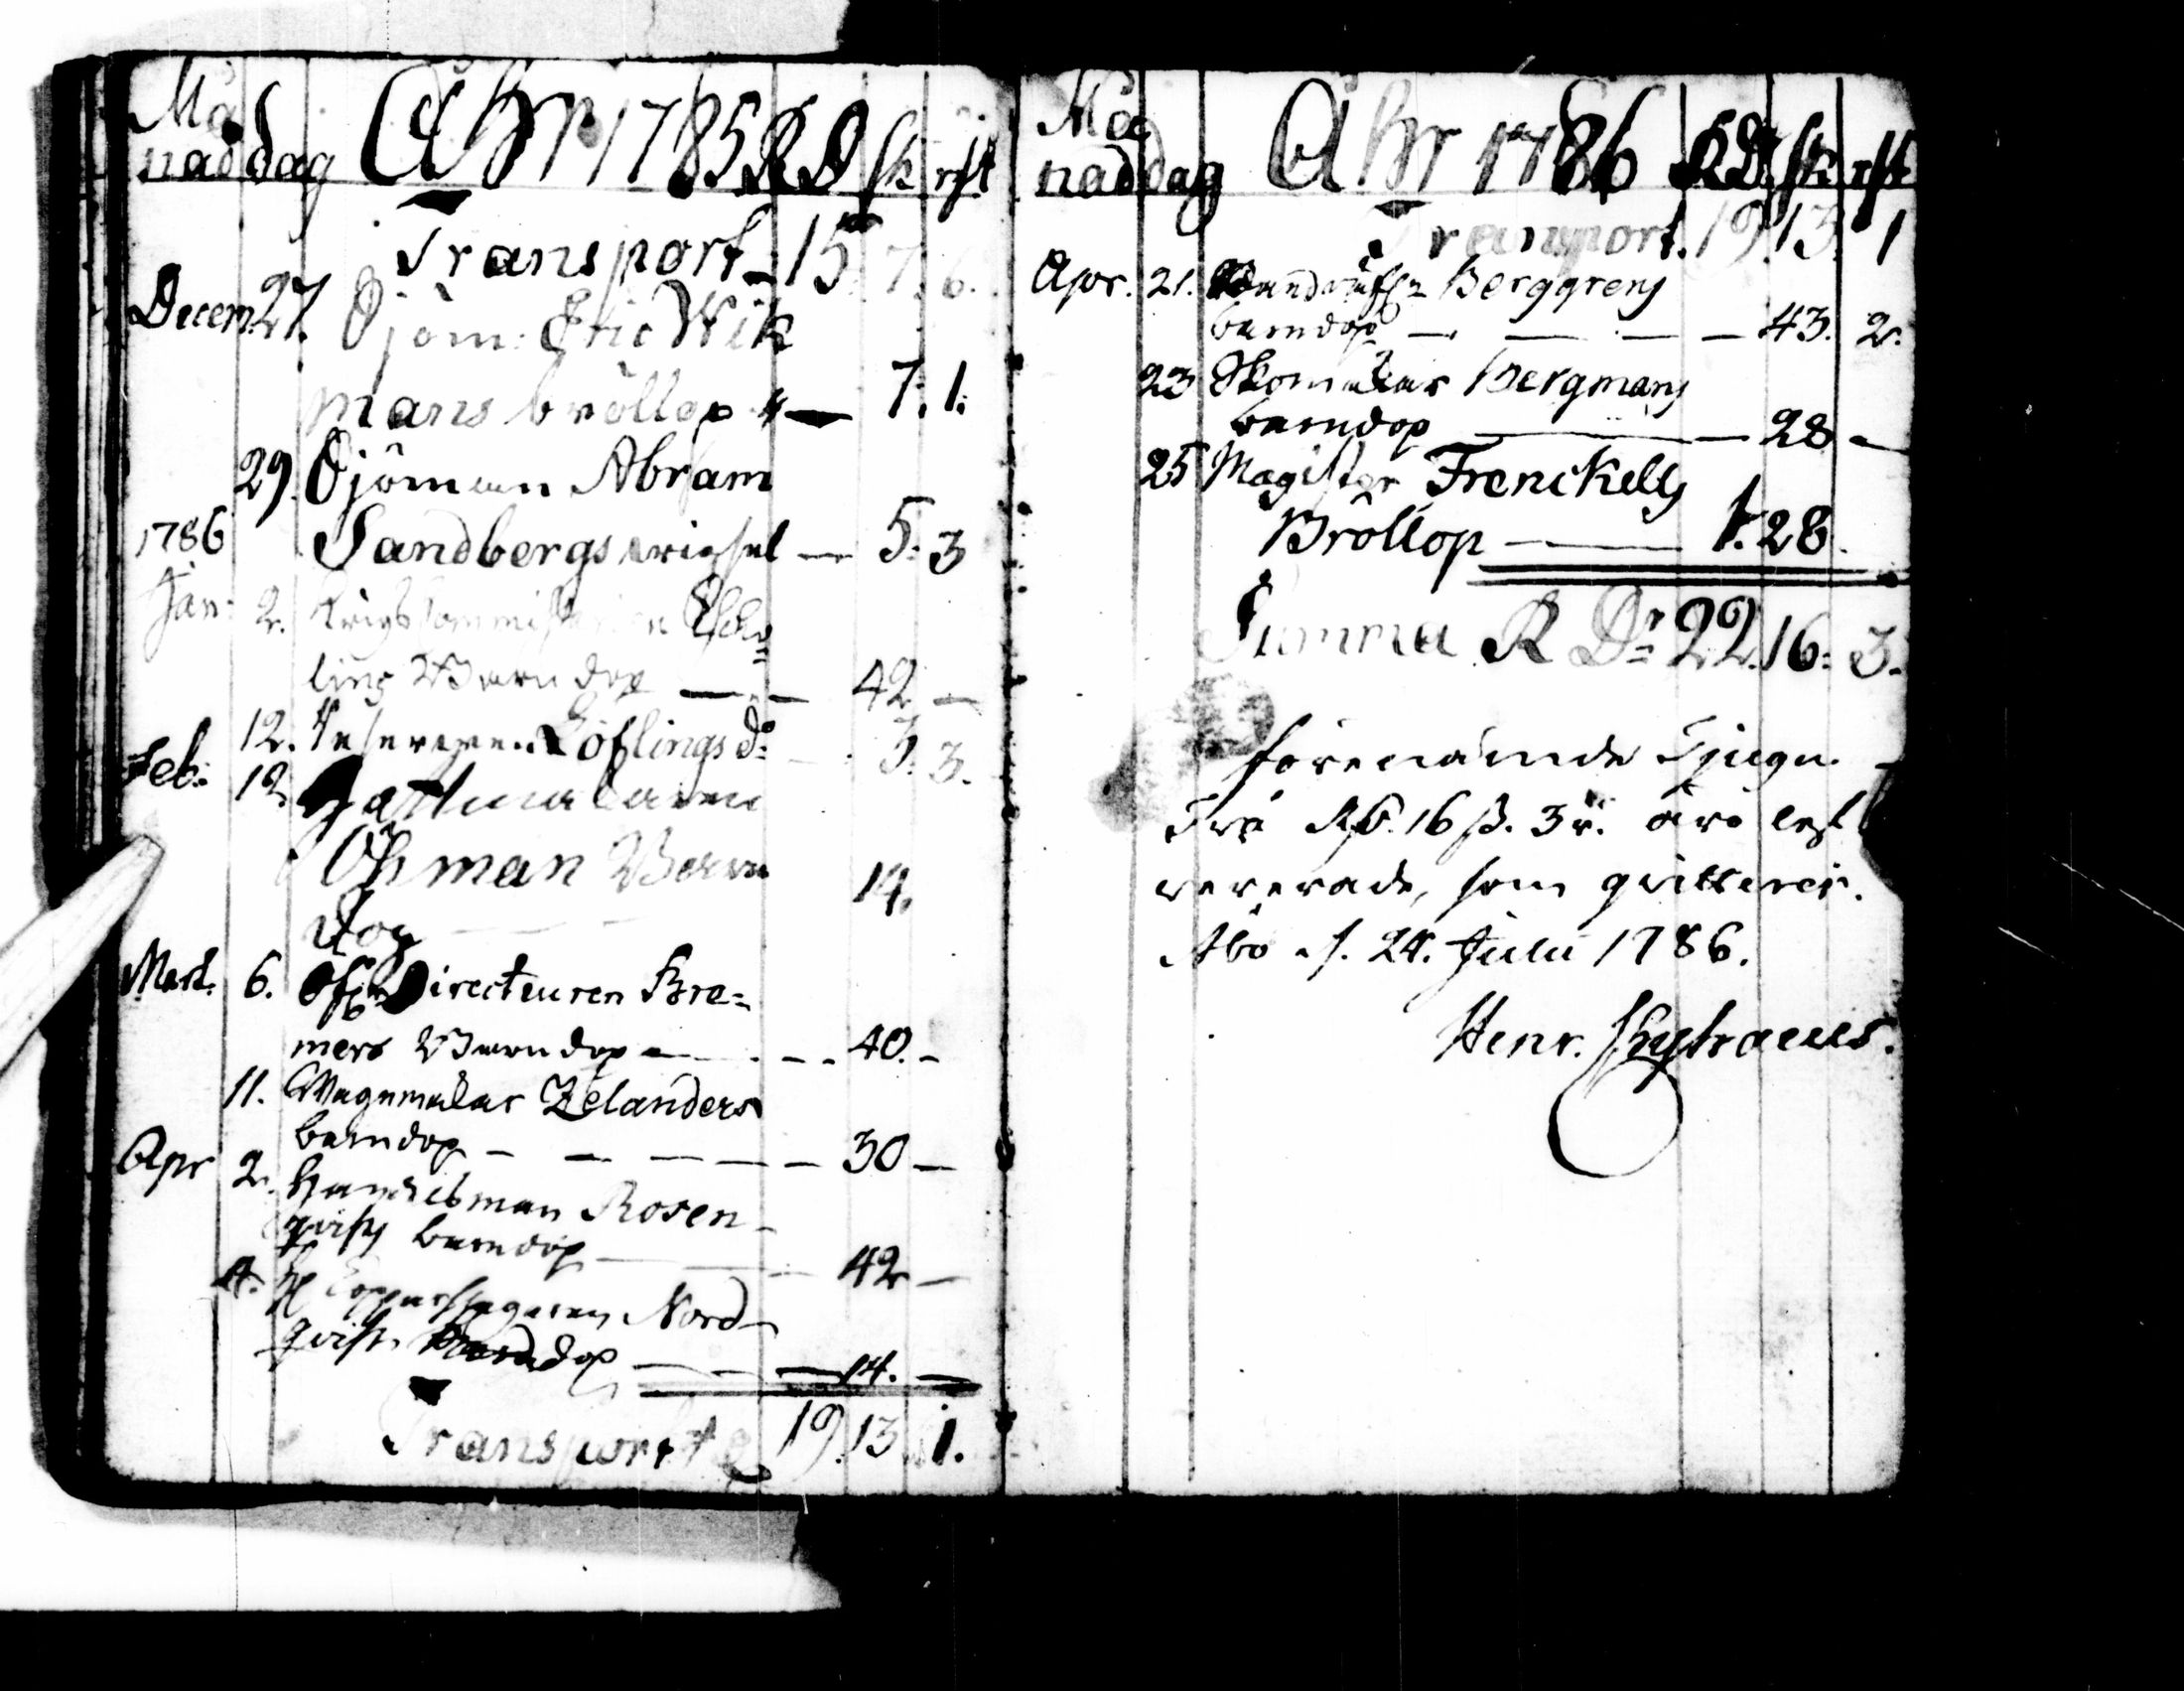 Må
nad dag Åhr 1785 RD sk rst
Transport 15. 7. 6.
Decem. 27. Sjöm: Eric Wik
mans bröllop — 7. 1.
29. Sjöman Abram
1786 Sandbergs wigsel — 5. 3
Jan. 2. Krigs Commissarien
ling Barndop — 42 —
12. Löflings do 3. 3.
Feb. 12 Hattmakaren
Öhman Barn
dop 14.
Mart. 6. Directeuren Bre=
mers Barndop — 40. —
11. Wagnmakar Zelanders
barndop — 30 —
Apr 2. Handelsman Rosen-
qvists barndop — 42 —
4. Kopparslagaren Nord-
qvists Barndop — 14. —
Transport 19. 13. 1.
Må
nad dag Åhr 1786 RD sk rst
Transport. 19. 13. 1
Apr. 21. Berggrens
barndop — 43. 2.
23 Skomakar Bergmans
barndop — 28 —
25 Magister Frenckells
Bröllop — 1. 28.
Summa R Dr 22. 16. 3.
förenämde Tjugu
Två Rd. 16 ß. 3 r. äro lef
vererade, som qvitteras.
Åbo d. 24. Julii 1786.
Henr.